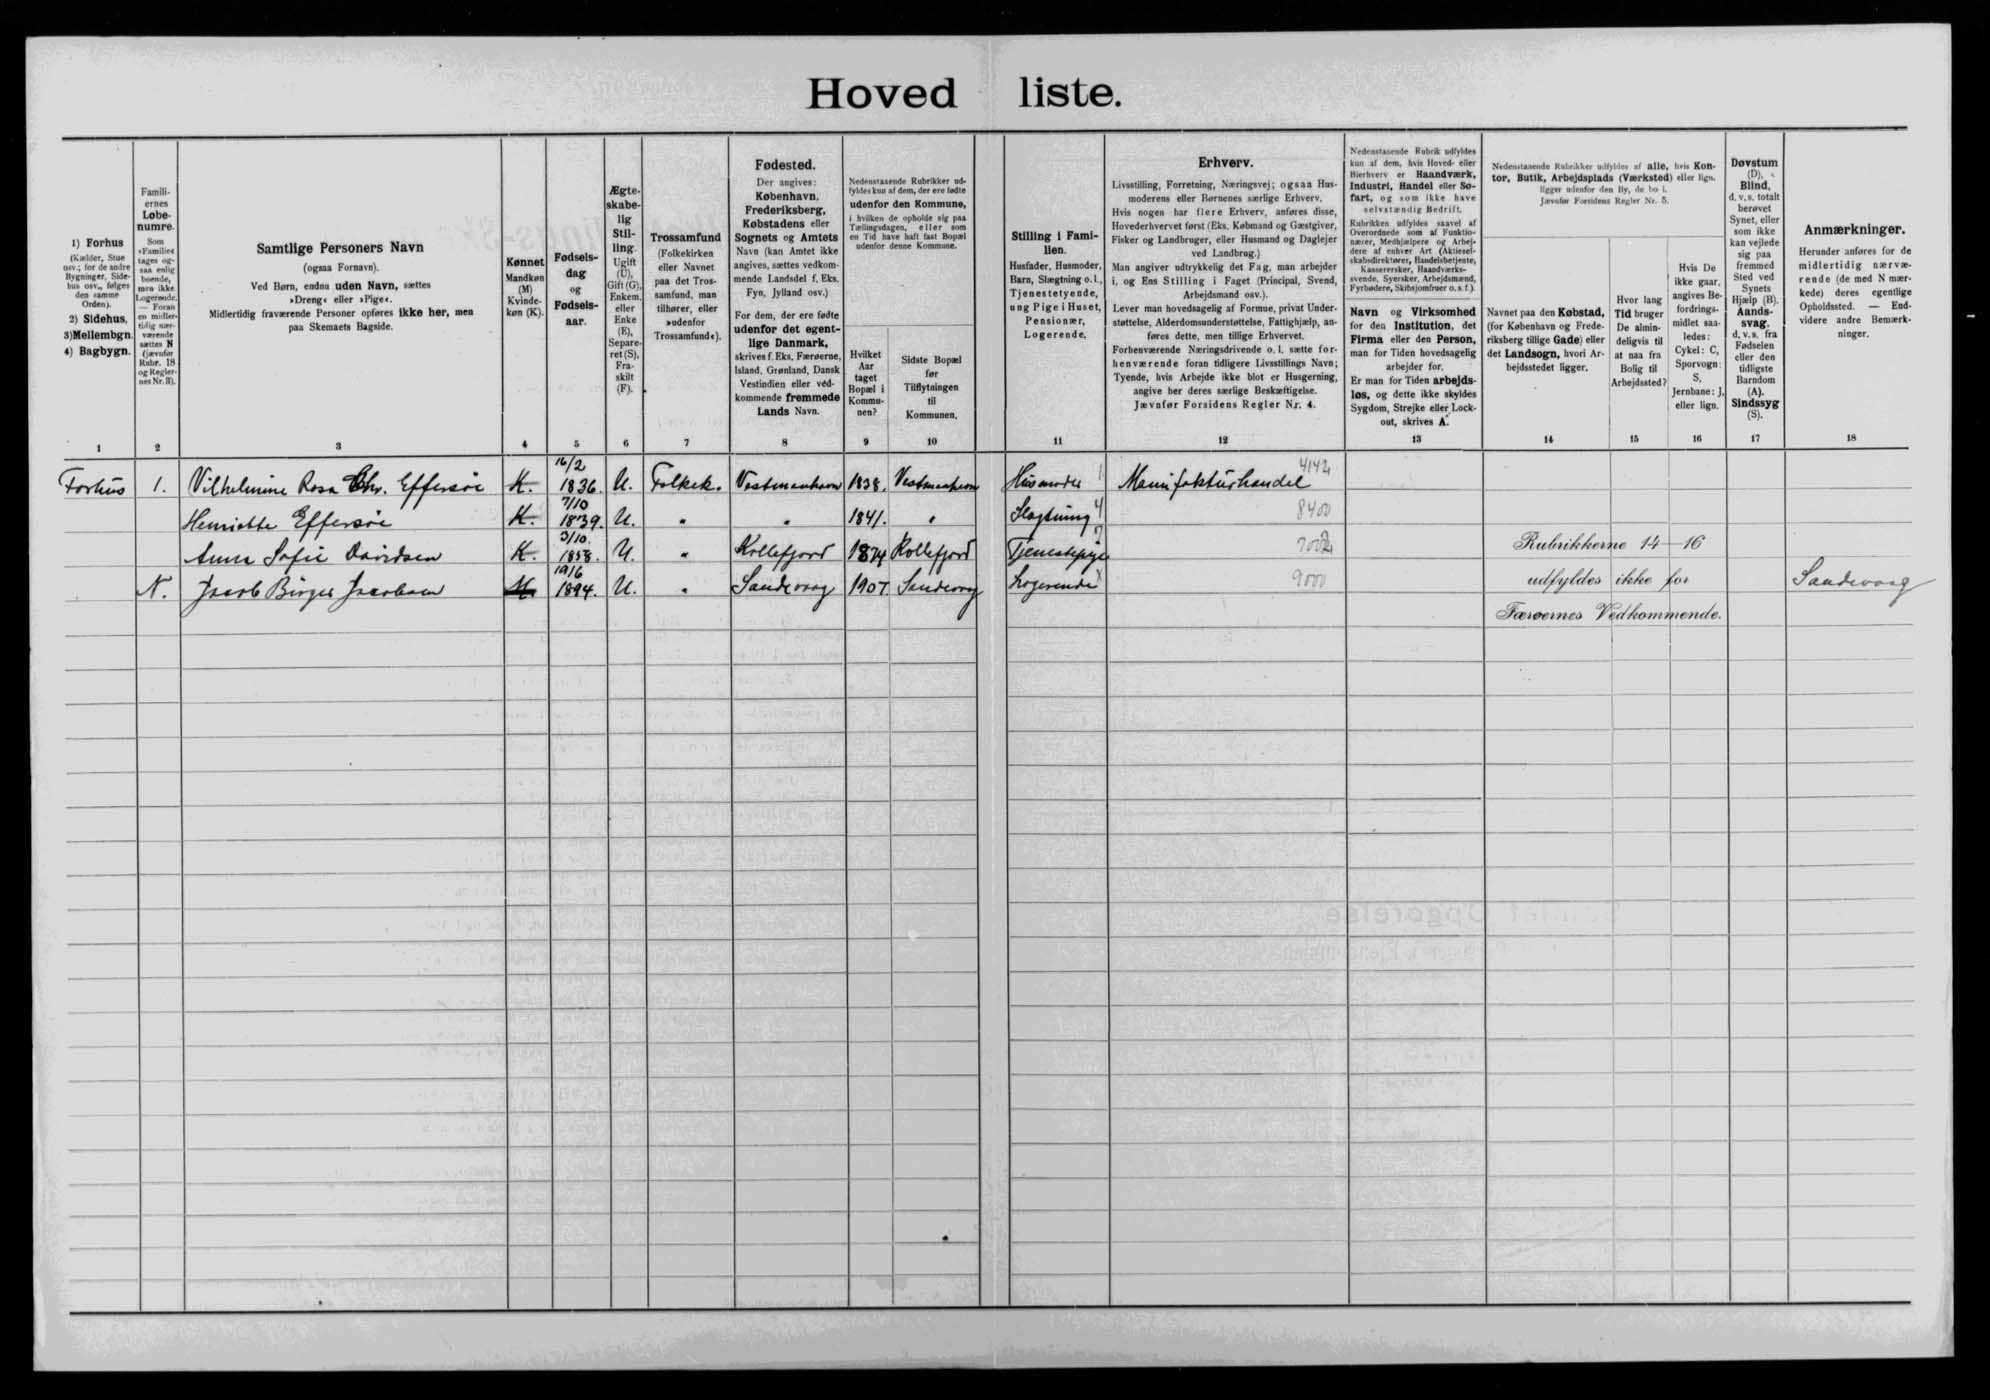 Hovedliste.
1) Forhus
(Kælder, Stue
osv.; for de andre
Bygninger, Side-
hus osv., følges
den samme
Orden).
2) Sidehus.
3) Mellembgn.
4) Bagbygn.
1
Famili-
ernes
Løbe-
numre.
Som
»Familie«
tages og-
saa enlig
boende,
men ikke
Logerende.
— Foran
en midler-
tidig nær-
værende
sættes N
(jævnfør
Rubr. 18
og Regler-
nes Nr. 3).
2
Samtlige Personers Navn
(ogsaa Fornavn).
Ved Børn, endnu uden Navn, sættes
»Dreng« eller »Pige«.
Midlertidig fraværende Personer opføres ikke her, men
paa Skemaets Bagside.
3
Kønnet
Mandkøn
(M)
Kvinde-
køn (K).
4
Fødsels-
dag
og
Fødsels-
aar.
5
Ægte-
skabe-
lig
Stil-
ling.
Ugift
(U),
Gift (G),
Enkem.
eller
Enke
(E),
Separe-
ret (S),
Fra-
skilt
(F).
6
Trossamfund
(Folkekirken
eller Navnet
paa det Tros-
samfund, man
tilhører, eller
»udenfor
Trossamfund«).
7
Fødested.
Der angives:
København,
Frederiksberg,
Købstadens eller
Sognets og Amtets
Navn (kan Amtet ikke
angives, sættes vedkom-
mende Landsdel f. Eks.
Fyn, Jylland osv.)
For dem, der ere fødte
udenfor det egent-
lige Danmark,
skrives f. Eks. Færøerne,
Island, Grønland, Dansk
Vestindien eller ved-
kommende fremmede
Lands Navn.
8
Nedenstaaende Rubrikker ud-
fyldes kun af dem, der ere fødte
udenfor den Kommune,
i hvilken de opholde sig paa
Tællingsdagen, eller som
en Tid have haft fast Bopæl
udenfor denne Kommune.
Hvilket
Aar
taget
Bopæl i
Kommu-
nen?
9
Sidste Bopæl
før
Tilflytningen
til
Kommunen.
10
Stilling i Fami-
lien.
Husfader, Husmoder,
Barn, Slægtning o. l.,
Tjenestetyende,
ung Pige i Huset,
Pensionær,
Logerende.
11
Erhverv.
Livsstilling, Forretning, Næringsvej; ogsaa Hus-
moderens eller Børnenes særlige Erhverv.
Hvis nogen har flere Erhverv, anføres disse,
Hovederhvervet først (Eks. Købmand og Gæstgiver,
Fisker og Landbruger, eller Husmand og Daglejer
ved Landbrug.)
Man angiver udtrykkelig det Fag, man arbejder
i, og Ens Stilling i Faget (Principal, Svend,
Arbejdsmand osv.).
Lever man hovedsagelig af Formue, privat Under-
støttelse, Alderdomsunderstøttelse, Fattighjælp, an-
føres dette, men tillige Erhvervet.
Forhenværende Næringsdrivende o. l. sætte for-
henværende foran tidligere Livsstillings Navn;
Tyende, hvis Arbejde ikke blot er Husgerning,
angive her deres særlige Beskæftigelse.
Jævnfør Forsidens Regler Nr. 4.
12
Nedenstaaende Rubrik udfyldes
kun af dem, hvis Hoved- eller
Bierhverv er Haandværk,
Industri, Handel eller Sø-
fart, og som ikke have
selvstændig Bedrift.
Rubrikken udfyldes saavel af
Overordnede som af Funktio-
nærer, Medhjælpere og Arbej-
dere af enhver Art (Aktiesel-
skabsdirektører, Handelsbetjente,
Kasserersker, Haandværks-
svende, Syersker, Arbejdsmænd,
Fyrbødere, Skibsjomfruer o. s. f.).
Navn og Virksomhed
for den Institution, det
Firma eller den Person,
man for Tiden hovedsagelig
arbejder for.
Er man for Tiden arbejds-
løs, og dette ikke skyldes
Sygdom, Strejke eller Lock-
out, skrives A.
13
Nedenstaaende Rubrikker udfyldes af alle, hvis Kon-
tor, Butik, Arbejdsplads (Værksted) eller lign.
ligger udenfor den By, de bo i.
Jævnfør Forsidens Regler Nr. 5.
Navnet paa den Købstad,
(for København og Frede-
riksberg tillige Gade) eller
det Landsogn, hvori Ar-
bejdsstedet ligger.
14
Hvor lang
Tid bruger
De almin-
deligvis til
at naa fra
Bolig til
Arbejdssted?
15
Hvis De
ikke gaar,
angives Be-
fordrings-
midlet saa-
ledes:
Cykel: C,
Sporvogn:
S,
Jernbane: J,
eller lign.
16
Døvstum
(D).
Blind,
d. v. s. totalt
berøvet
Synet, eller
som ikke
kan vejlede
sig paa
fremmed
Sted ved
Synets
Hjælp (B).
Aands-
svag,
d. v. s. fra
Fødselen
eller den
tidligste
Barndom
(A).
Sindssyg
(S).
17
Anmærkninger.
Herunder anføres for de
midlertidig nærvæ-
rende (de med N mær-
kede) deres egentlige
Opholdssted. — End-
videre andre Bemærk-
ninger.
18
Forhus 1. Vilhelmine Rosa Chr. Effersøe K. 16/2 1836. U. Folkek. Vestmanhavn 1838. Vestmanhavn Husmoder 1 Manifakturhandel 4142
Henriette Effersøe K. 7/10 1839. U. " " 1841. " Slægtning 4 8400
Anna Sofie Davidsen K. 3/10. 1858. U. " Kollefjord 1874 Kollefjord Tjenestepige 7 Rubrikkerne 14—16
N. Jacob Birger Jacobsen M 19/6 1894. U. " Sandevaag 1907 Sandevaag Logerende x 9000 udfyldes ikke for Sandevaag
Færøernes Vedkommende.